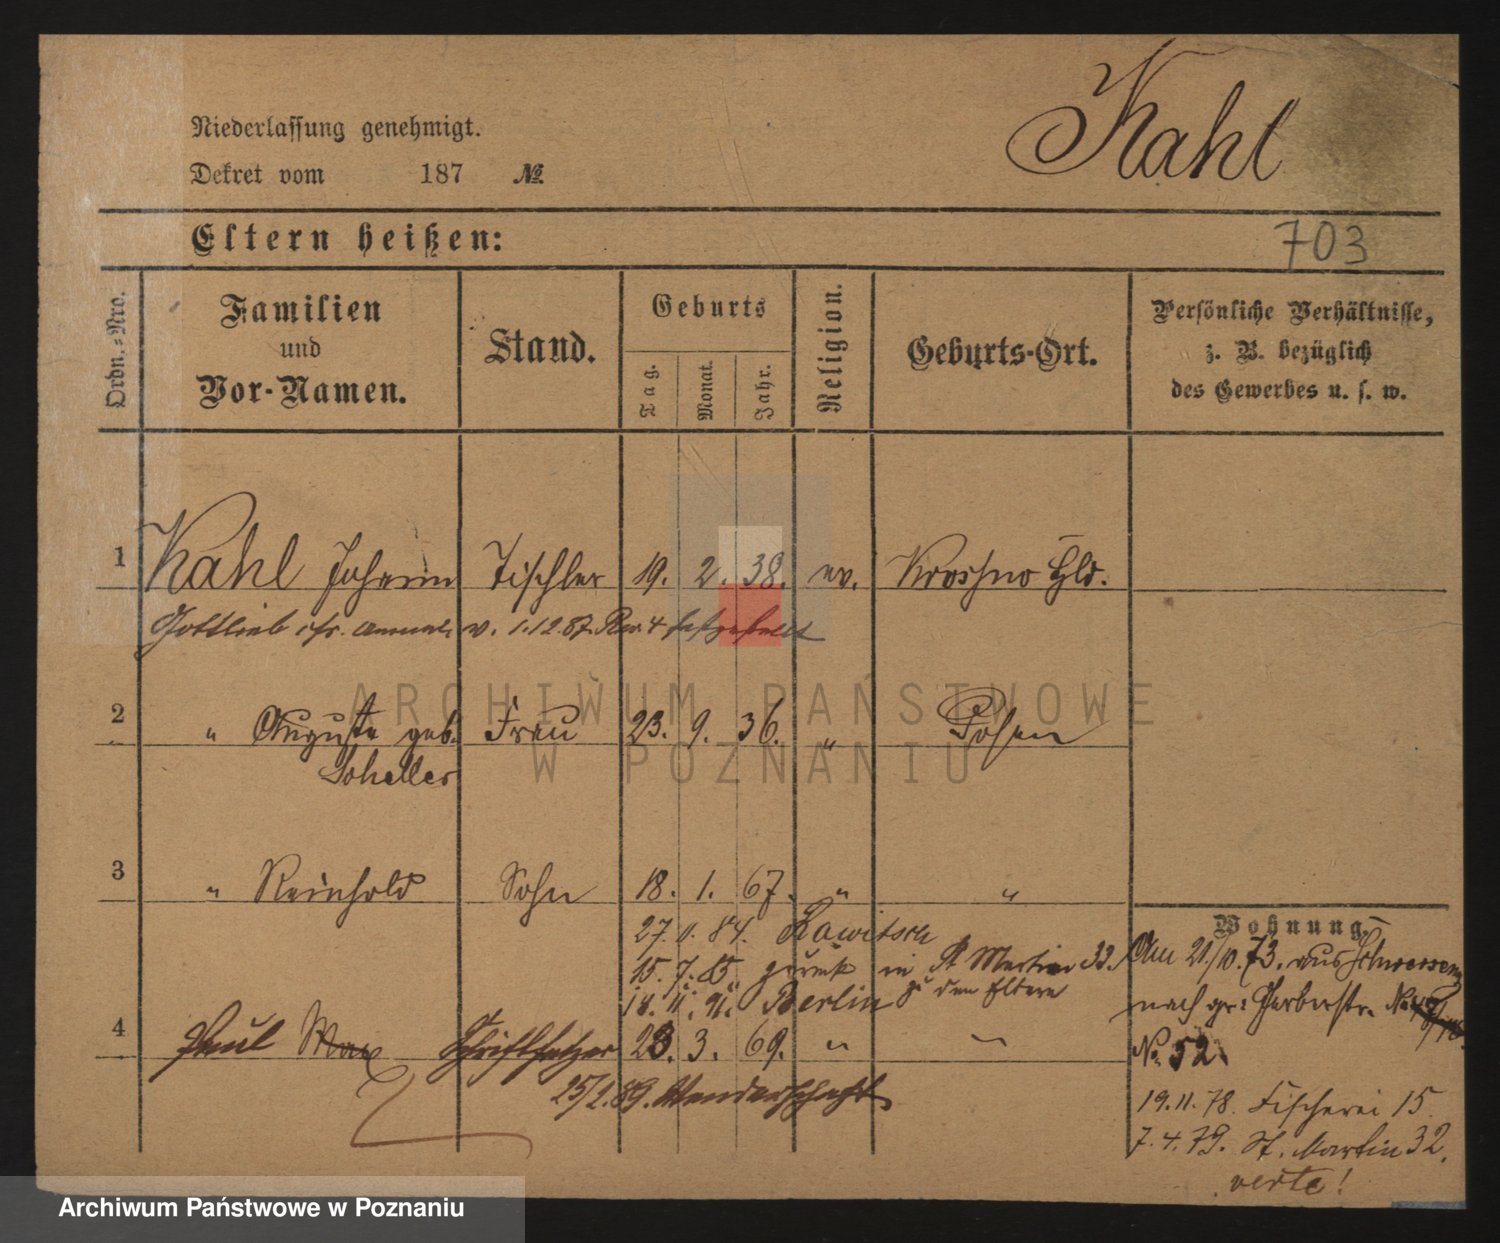 Kahl
Niederlassung genehmigt.
Dekret vom 187 №
Eltern heißen:
703
Ordn.-Nro.
Familien und Vor-Namen.
Stand.
Geburts
Tag. Monat. Jahr.
Religion.
Geburts-Ort.
Persönliche Verhältnisse,
z. B. bezüglich
des Gewerbes u. s. w.
1 Kahl Johann Tischler 19. 2. 38. ev. Kroschno Hld.
Gottlieb v. 1.12.87. Rev. 4 festgestellt
2 " Auguste geb. Frau 23. 9. 36. " Posen
Scheller
3 " Reinhold Sohn 18. 1. 67. " "
27. 11. 84. Rawitsch
15. 7. 85. zurück in St Martin 33.
zu den Eltern
18. 11. 91. Berlin
4 Paul Max Schriftsetzer 23. 3. 69. " "
25/2. 89. Wanderschaft
Wohnung.
Am 21/10. 73. aus Schwersenz
nach gr: Gerberstr. No
No 52.
19.11.78. Fischerei 15.
7.4.79. St. Martin 32.
verte!
ARCHIWUM PAŃSTWOWE
W POZNANIU
Archiwum Państwowe w Poznaniu